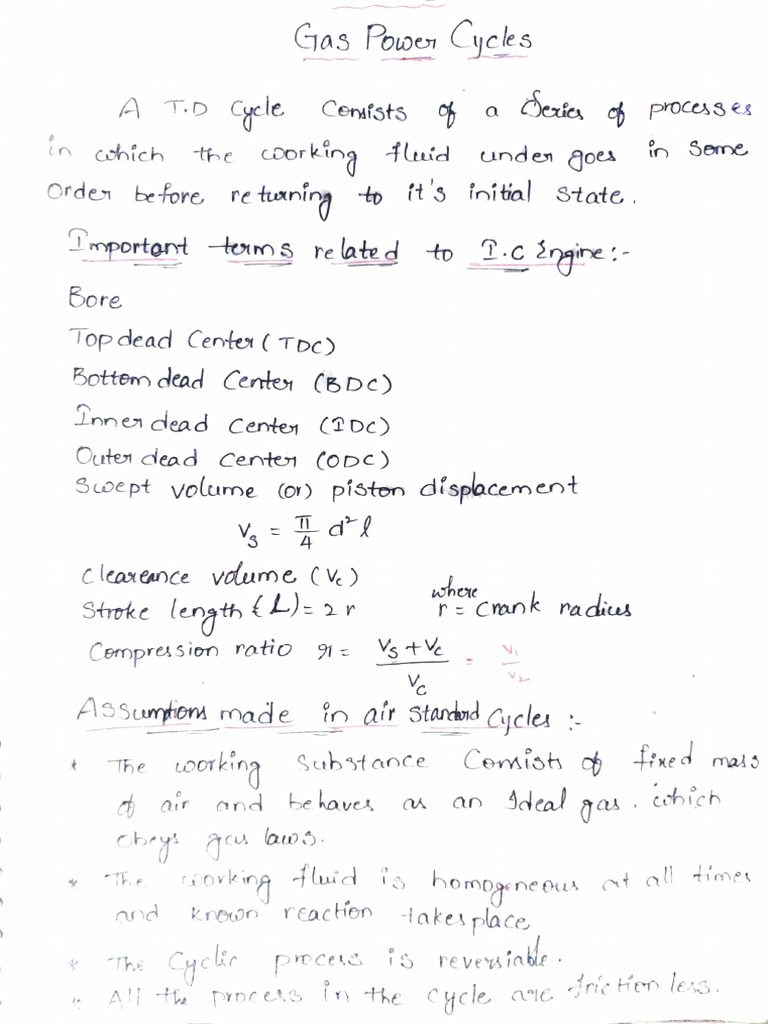 Gas Power Cycles
A T.D Cycle Consists of a Series of processes
in which the working fluid under goes in some
Order before returning to it's initial state.
Important terms related to I.C Engine:-
Bore
Top dead Center (TDC)
Bottom dead Center (BDC)
Inner dead Center (IDC)
Outer dead Center (ODC)
Swept volume (or) piston displacement
Vs = π/4 d² l
Clearence volume (Vc)
Stroke length (L) = 2 r where r = Crank radius
Compression ratio r = Vs + Vc / Vc = V1 / V2
Assumptions made in air standard Cycles :-
* The working Substance Consists of fixed mass
of air and behaves as an Ideal gas. which
obeys gas laws.
* The working fluid is homogeneous at all times
and known reaction takes place
* The Cyclic process is reversiable.
* All the process in the cycle are friction less.